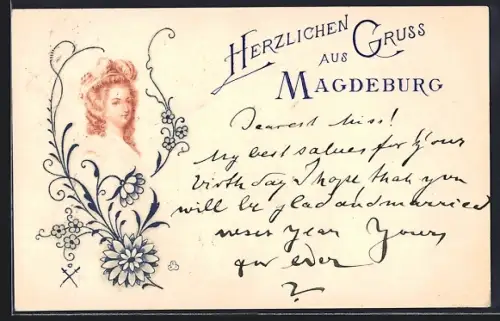 HERZLICHEN GRUSS
AUS
MAGDEBURG
Dearest Miss!
My best salues for your
birth day I hope that you
will be glad and married
next year Yours
for eder
?